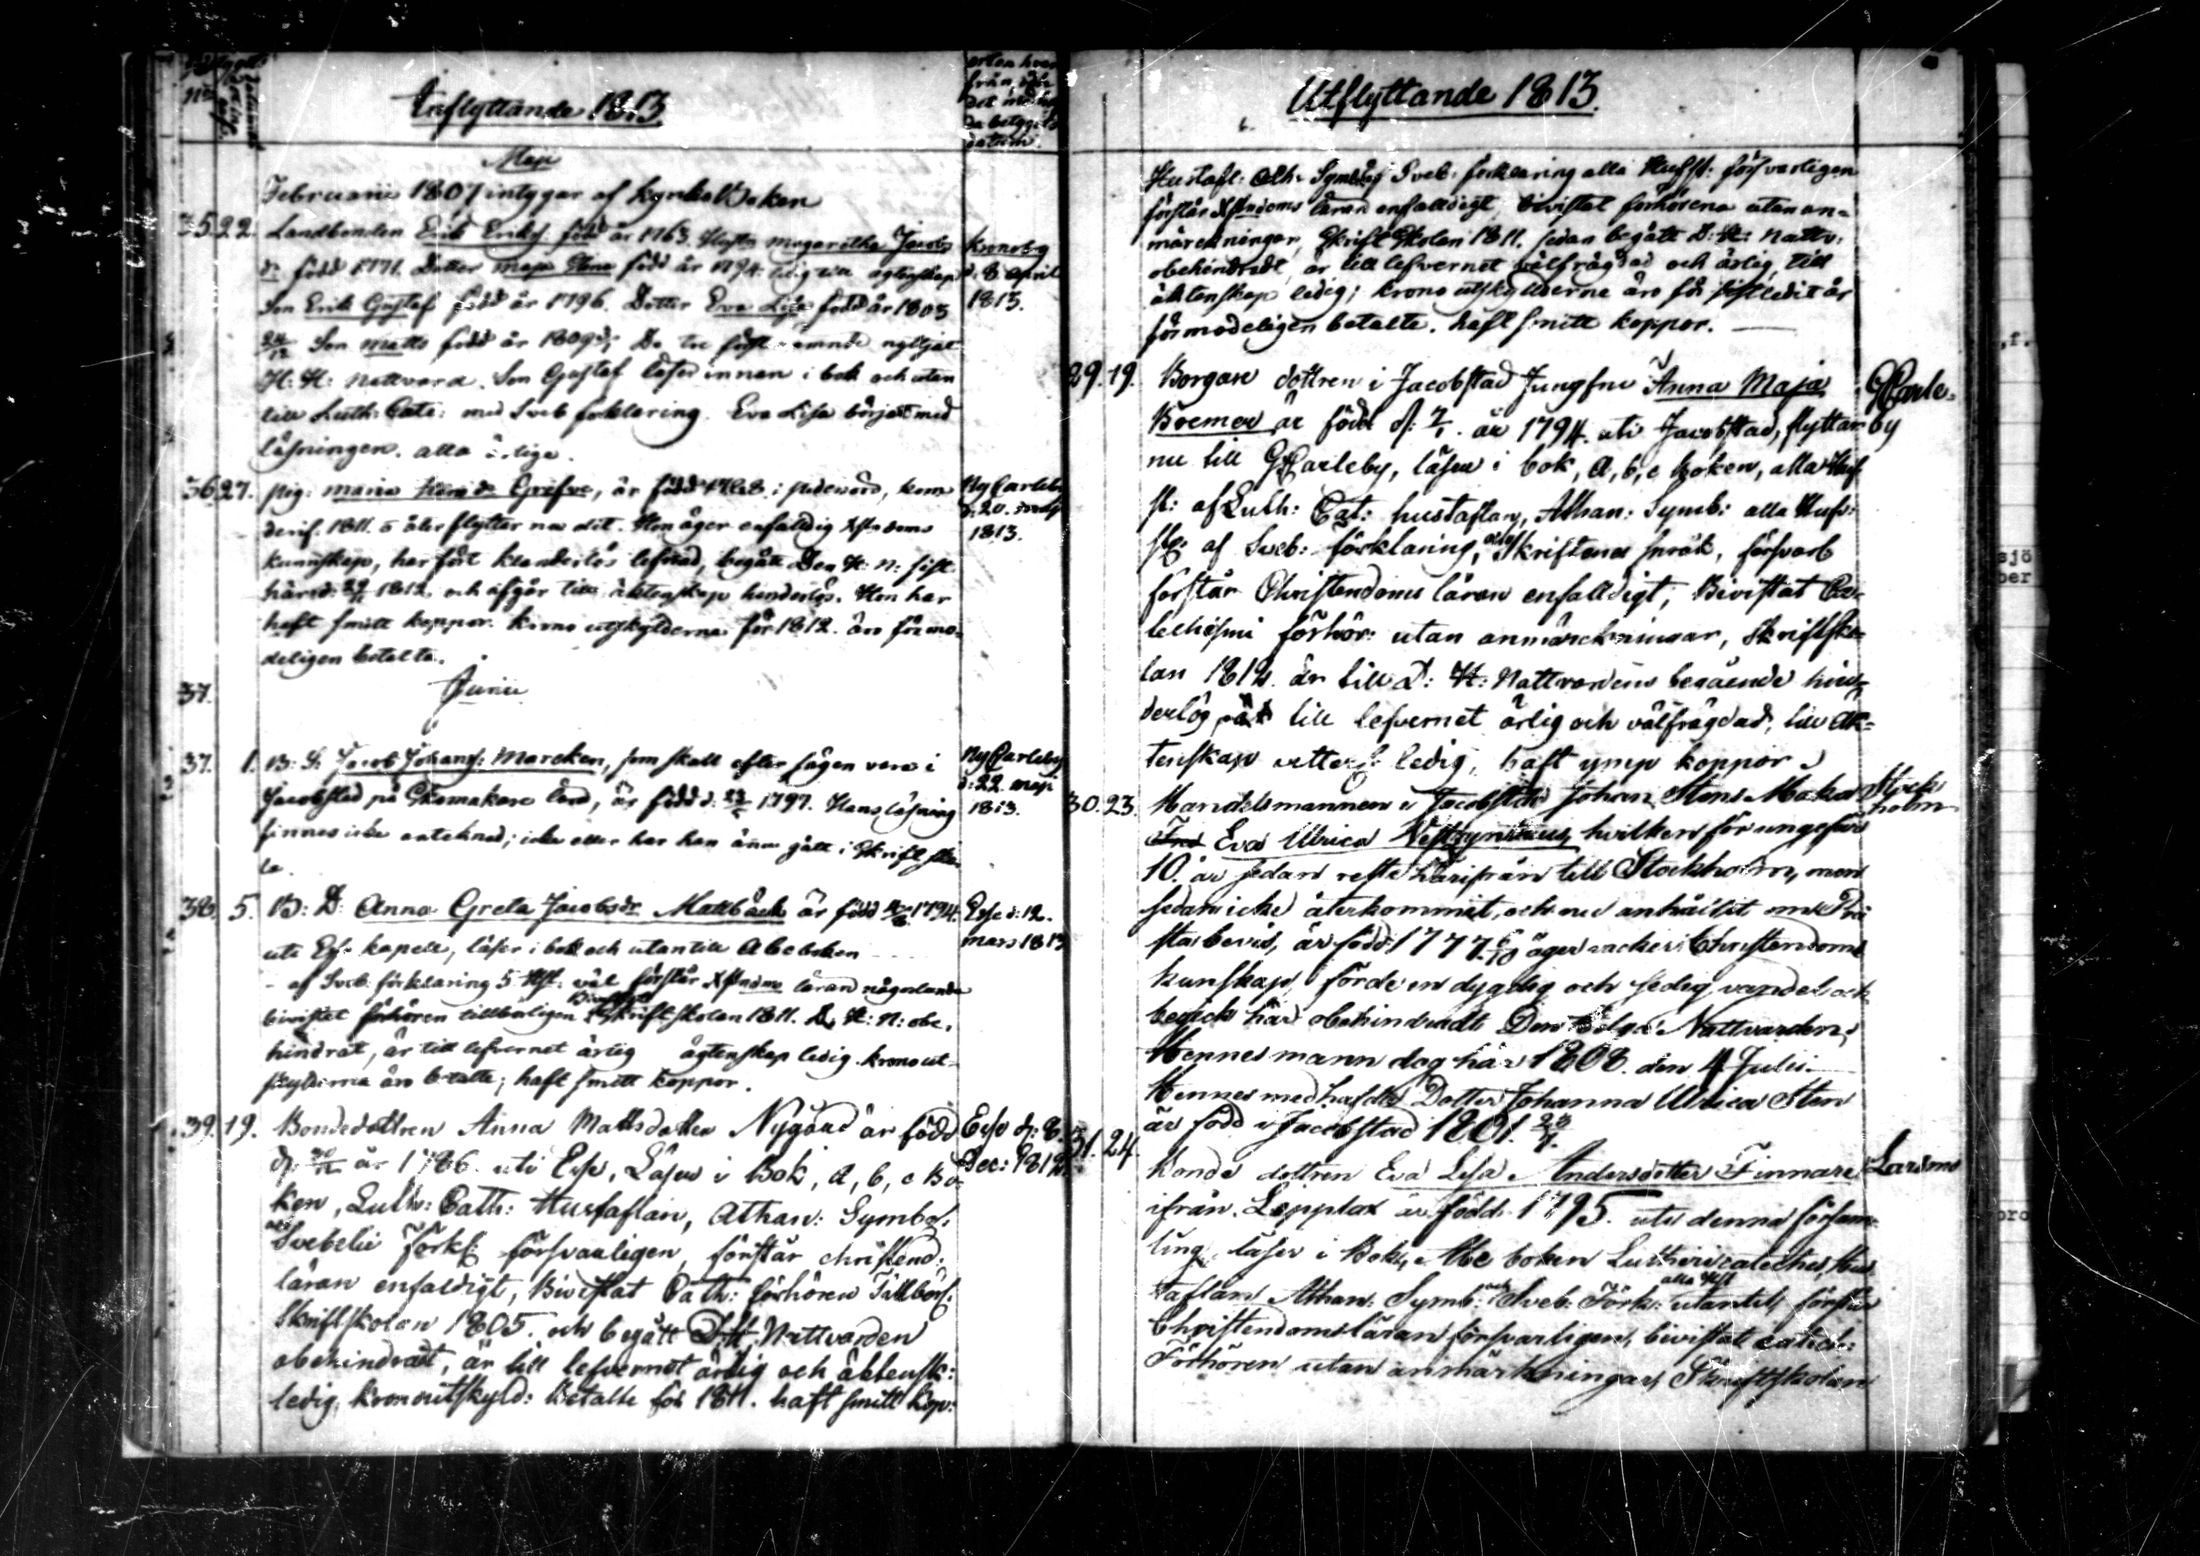 Inflyttande 1813
orten hvar
från, och
betyg
datum.
Maji
Februarii 1807 intygar af Kyrko Boken
35. 22. Landbonden Erik Eriks. född år 1763. Hustr. Margaretha Jacobs
Kronoby
d:r född 1771. Dotter Maja född år 1794. ledig till ägtenskap
d: 8 April
Son Erik Gustaf född år 1796. Dotter Eva Lisa född år 1805
1813.
Son Matts född år 1809 De tre först nämnde nyttjat
H: H: Nattvard. Son Gustaf läser innan i bok och utan
till Luth: Cate: med Sveb förklaring. Eva Lisa börjat med
läsningen. alla ärlige.
36. 27. pig: Maria Grefve, är född i pedersöre, kom
Ny Carleby
derif. 1811. o åter flyttar nu dit. Hon äger enfalldig Xstendoms
d: 20. Maji
kunnskap, har fört klanderlös lefnad, begått Den H: N: sist
1813.
här d: 1812. och afgår till äktenskap hinderlös. Hon har
haft smitt koppor. Krono utskylderna för 1812. äro förmo-
deligen betalte.
37.
Junii
37. 1. B: S: Jacob Johans: Marcken, som skall efter sägen vara i
Ny Carleby
Jacobstad på Skomakare lära, är född d: 1797. Hans läsning
d: 22. Maji
1813.
finnes icke antecknad; icke eller har han ännu gått i Skrift sko
la.
38. 5. B: D: Anna Greta Jacobsdr Mattbäck är född 1794.
Esse d: 12.
uti Esse kapell, läser i bok och utantill Abeboken
Mars 1813
- af Sveb. förklaring 5 Hst: väl förstår Xstndoms läran någorlunda
bivistat förhören tillbörligen Skriftskolan 1811. D. H: N: obe-
hindrat, är till lefvernet ärlig ägtenskap ledig. krono ut-
skylderna äro betalte; haft smitt koppor.
39. 19. Bondedottren Anna Mattsdotter Nygård är född
Esse d: 8.
d: år 1786 uti Esse, Läser i Bok, a, b, c Bo-
Dec: 1812.
ken, Luth: Cath: Hustaflan, Athan: Symbol.
Svebelii förkl: försvarligen, förstår christend:
läran enfaldigt, Bivistat Cath: förhören Tillbörl:
Skriftskolan 1805. och begått D: H: Nattvarden
obehindrat, är till lefvernet ärlig och äktensk:
ledig, kronoutskyld: Betalte för 1811. haft smitt kop:
Utflyttande 1813.
Hustafl: Ath: Symbol: Sveb: förklaring alla Hufst: försvarligen
förstår Xstndoms läran enfalldigt, bivistat förhören utan an-
märckningar, Skrift Skolan 1811. sedan begått D: H: Nattv:
obehindradt, är till lefvernet välfrägdad och ärlig, till
äktenskap ledig; krono utskylderne äro för sistledit år
förmodeligen betalte. haft smitt koppor.
29. 19. Borgare dottren i Jacobstad Jungfru Anna Maja
GCarle-
by
Bremer är född d: 7/1. år 1794. uti Jacobstad, flyttar
nu till GCarleby, läser i bok, a, b, c boken, alla Huf
st: af Luth: Cat: hustaflan, Athan: Symb: alla Hufv:
st: af Sveb: förklaring, Skriftenes språk, försvarl
förstår Christendoms läran enfalldigt, Bivistat Ca-
techismi förhör: utan anmärckningar, Skriftsko-
lan 181 är till D: H: Nattvardens begående hin-
derlös, till lefvernet ärlig och välfrägdad, till äk-
tenskap ledig, haft ymp koppor.
30. 23. Handelsmannen i Jacobstad Johan Stens Maka
Stock-
holm
Eva Ulrica hvilken för ungefär
10. år sedan reste härifrån till Stockholm, men
sedan icke återkommit, och nu anhållit om Prä
sta bevis, är född 1777. äger vacker Christendoms
kunskap, förde en dygdig och sedig vandel och
begick här obehindradt Den Helga Nattvarden;
Hennes mann dog här 1808. den 4 Julii.
Hennes medhafda Dotter Johanna Ulrica Sten
är född i Jacobstad 1801.
31. 24. Bonde dottren Eva Lisa Andersdotter Finnare
Larsmo
ifrån Lepplax är född 1795. uti denna försam-
ling, läser i Bok, Abc boken Lutheri cateches, Hus
taflan Athan: Symb: och Sveb: Förk: alla Hst utantill, förstår
Christendomsläran försvarligen, bivistat catech:
Förhören utan anmärkningar, Skriftskolan